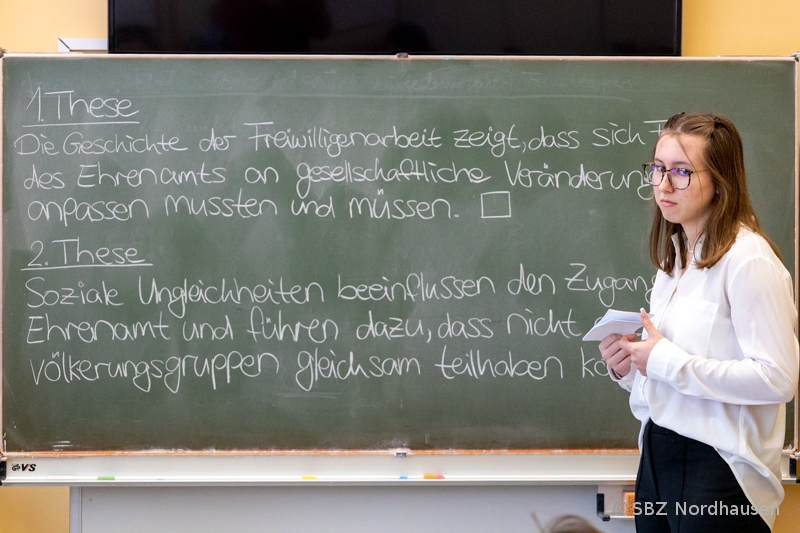 1. These
Die Geschichte der Freiwilligenarbeit zeigt, dass sich F
des Ehrenamts an gesellschaftliche Veränderung
anpassen mussten und müssen.
2. These
Soziale Ungleichheiten beeinflussen den Zugan
Ehrenamt und führen dazu, dass nicht
völkerungsgruppen gleichsam teilhaben kö
VS
SBZ Nordhausen